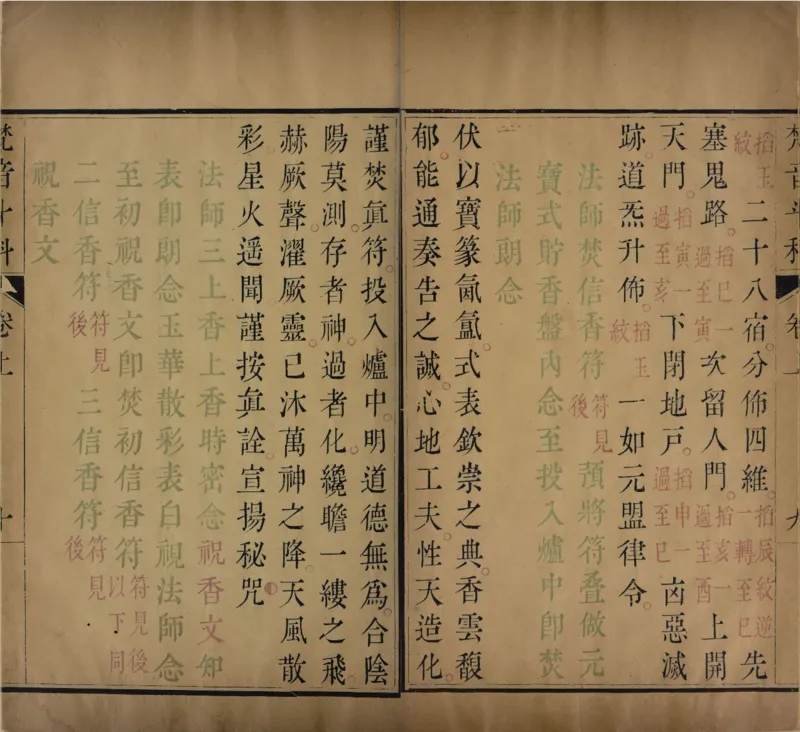 梵音斗科 卷上 九
掐玉紋二十八宿。分佈四維。掐辰紋逆一轉至巳先
塞鬼路。掐巳一過至寅次留人門。掐亥一過至酉上開
天門。掐寅一過至亥下閉地戶。掐申一過至巳凶惡滅
跡。道炁升佈。掐玉紋一如元盟律令。
法師焚信香符符見後預將符叠做元
寶式貯香盤內念至投入爐中即焚
法師朗念
伏以寶篆氤氳。式表欽崇之典。香雲馥
郁。能通奏告之誠。心地工夫。性天造化。
謹焚眞符。投入爐中。明道德無爲。合陰
陽莫測。存者神。過者化。纔瞻一縷之飛。
赫厥聲。濯厥靈。已沐萬神之降。天風散
彩。星火遥聞。謹按眞詮。宣揚秘咒
法師三上香上香時密念祝香文知
表即朗念玉華散彩表白祝法師念
至初祝香文即焚初信香符符見後以下同
二信香符符見後三信香符符見後
祝香文
梵音斗科 卷上 十